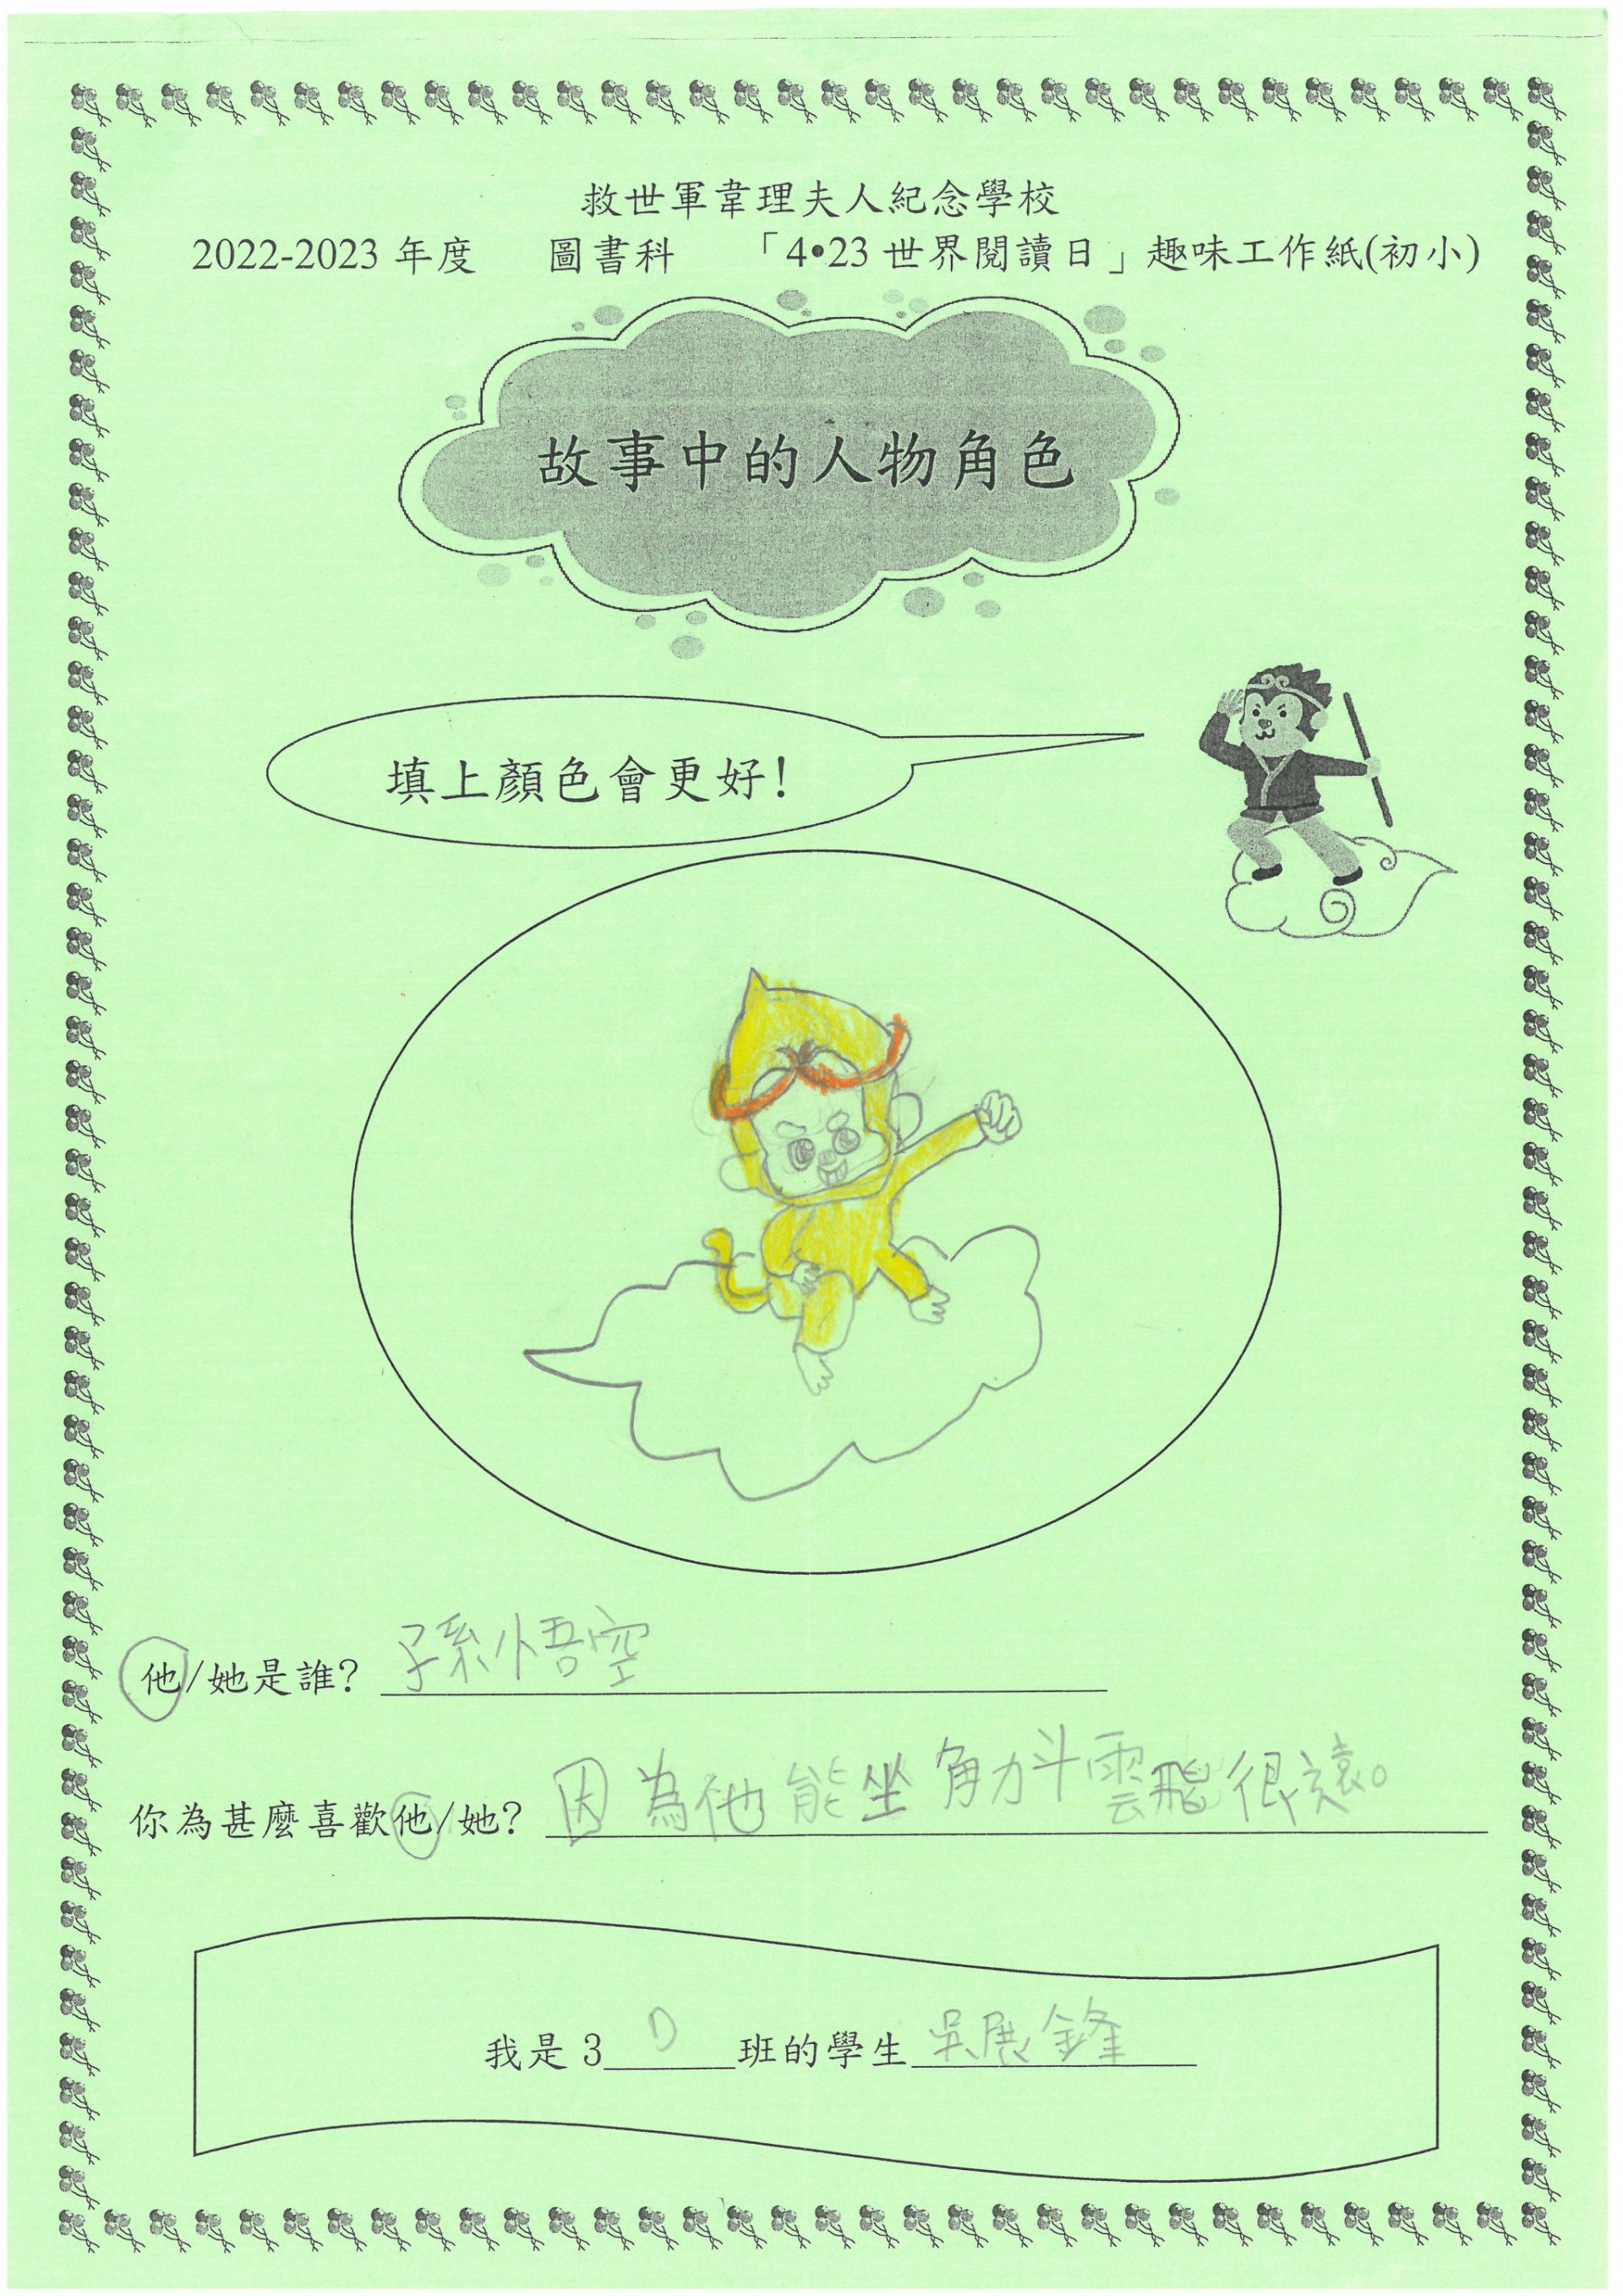 救世軍韋理夫人紀念學校
2022-2023 年度 圖書科 「4•23 世界閱讀日」趣味工作紙(初小)
故事中的人物角色
填上顏色會更好!
他/她是誰? 孫悟空
你為甚麼喜歡他/她? 因為他能坐角力斗雲飛很遠。
我是 3 D 班的學生 吳展鋒